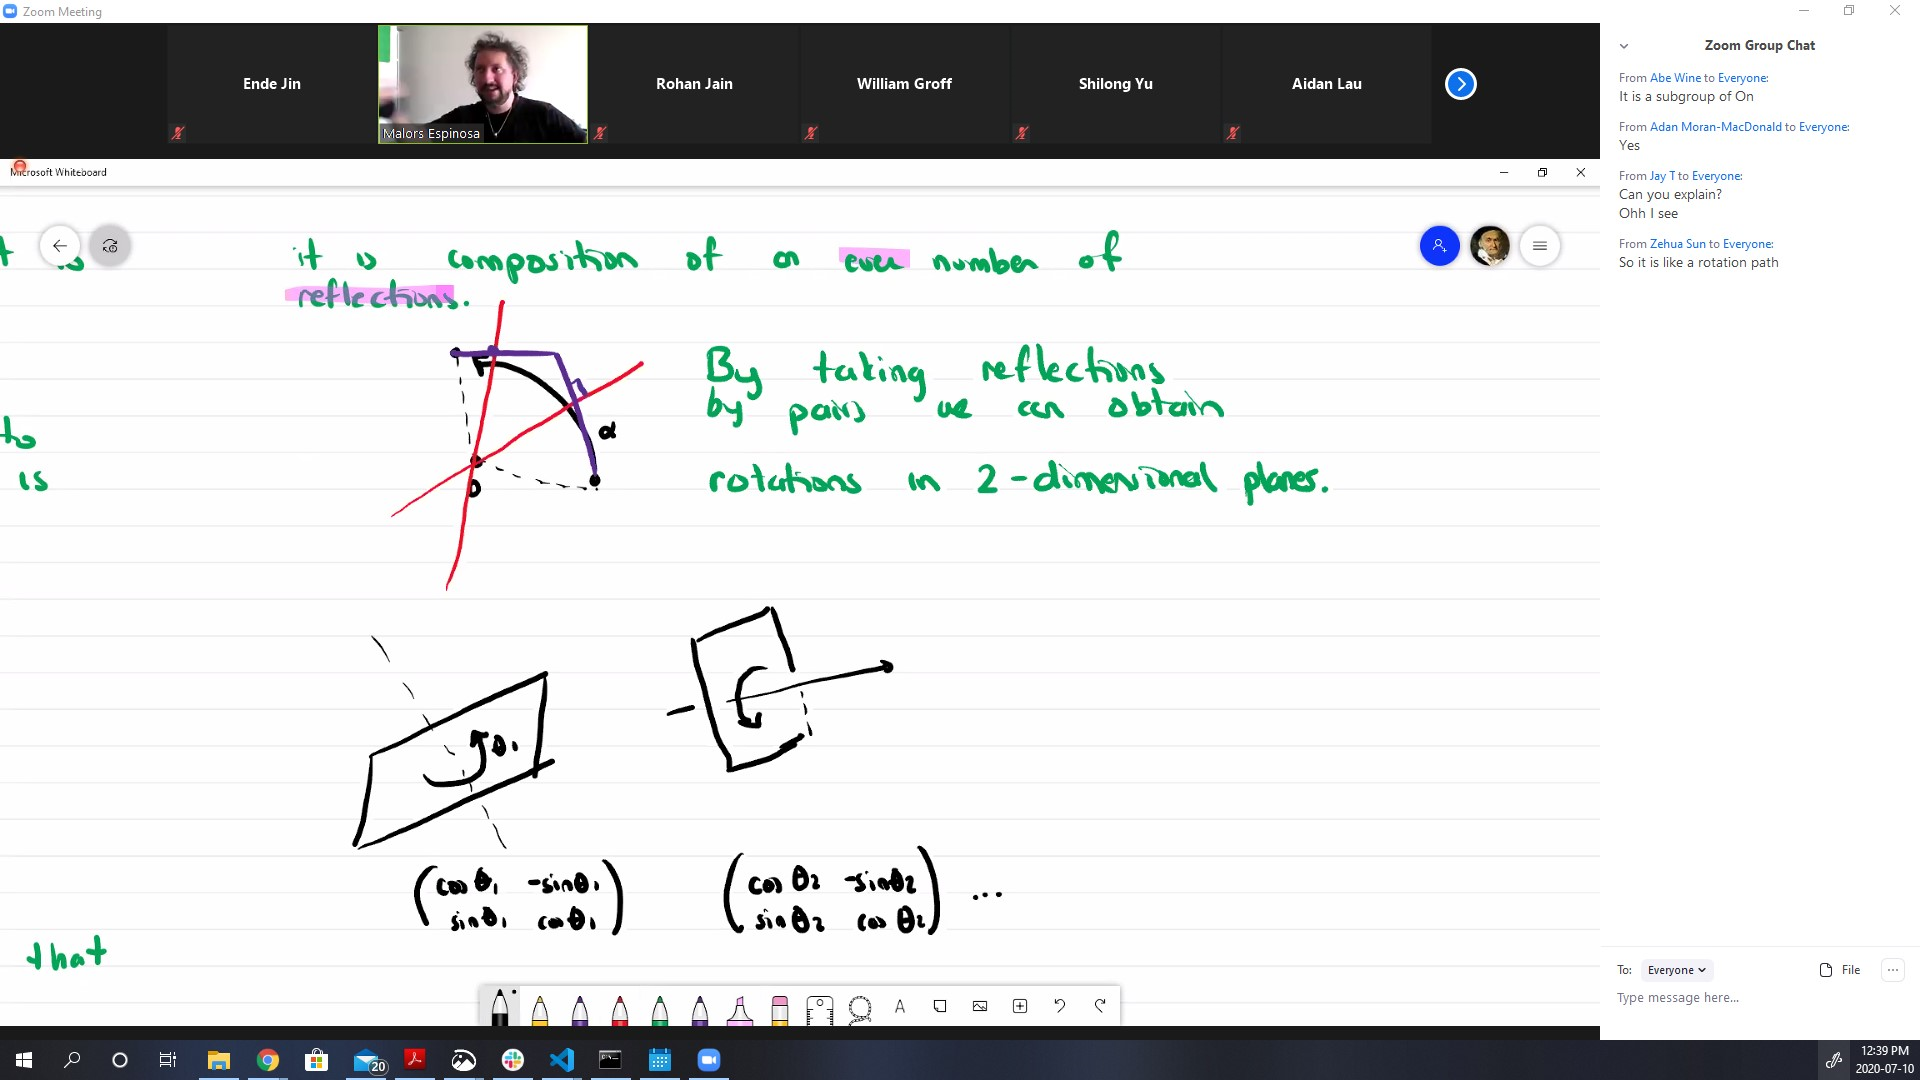 Zoom Meeting
Ende Jin
Malors Espinosa
Rohan Jain
William Groff
Shilong Yu
Aidan Lau
Microsoft Whiteboard
it is composition of an even number of
reflections.
By taking reflections
by pairs we can obtain
rotations in 2-dimensional planes.
α
0
to
is
is
θ₁
(cos θ₁ -sin θ₁
sin θ₁ cos θ₁)
(cos θ₂ -sin θ₂
sin θ₂ cos θ₂) ...
that
A
Zoom Group Chat
From Abe Wine to Everyone:
It is a subgroup of On
From Adan Moran-MacDonald to Everyone:
Yes
From Jay T to Everyone:
Can you explain?
Ohh I see
From Zehua Sun to Everyone:
So it is like a rotation path
To: Everyone File ...
Type message here...
20
12:39 PM
2020-07-10